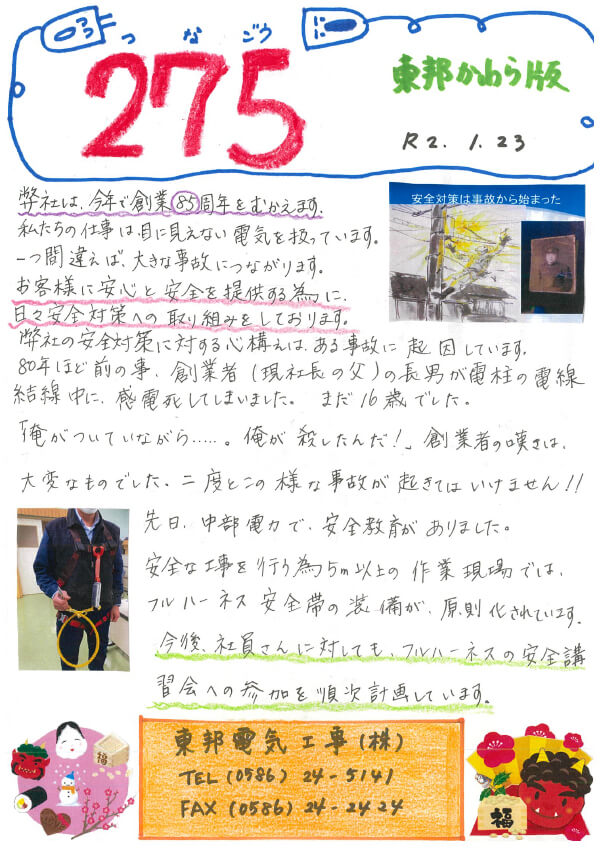 つなごう
275
東邦かわら版
R2.1.23
弊社は、今年で創業85周年をむかえます。
私たちの仕事は目に見えない電気を扱っています。
一つ間違えば、大きな事故につながります。
お客様に安心と安全を提供する為に、
日々安全対策への取り組みをしております。
安全対策は事故から始まった
弊社の安全対策に対する心構えは、ある事故に起因しています。
80年ほど前の事、創業者(現社長の父)の長男が電柱の電線
結線中に、感電死してしまいました。 まだ16歳でした。
「俺がついていながら.....。俺が殺したんだ!」創業者の嘆きは、
大変なものでした。二度とこの様な事故が起きてはいけません!!
先日、中部電力で、安全教育がありました。
安全な工事を行う為5m以上の作業現場では、
フルハーネス安全帯の装備が、原則化されています。
今後、社員さんに対しても、フルハーネスの安全講
習会への参加を順次計画しています。
東邦電気工事(株)
TEL(0586) 24-5141
FAX(0586) 24-2424
福
福